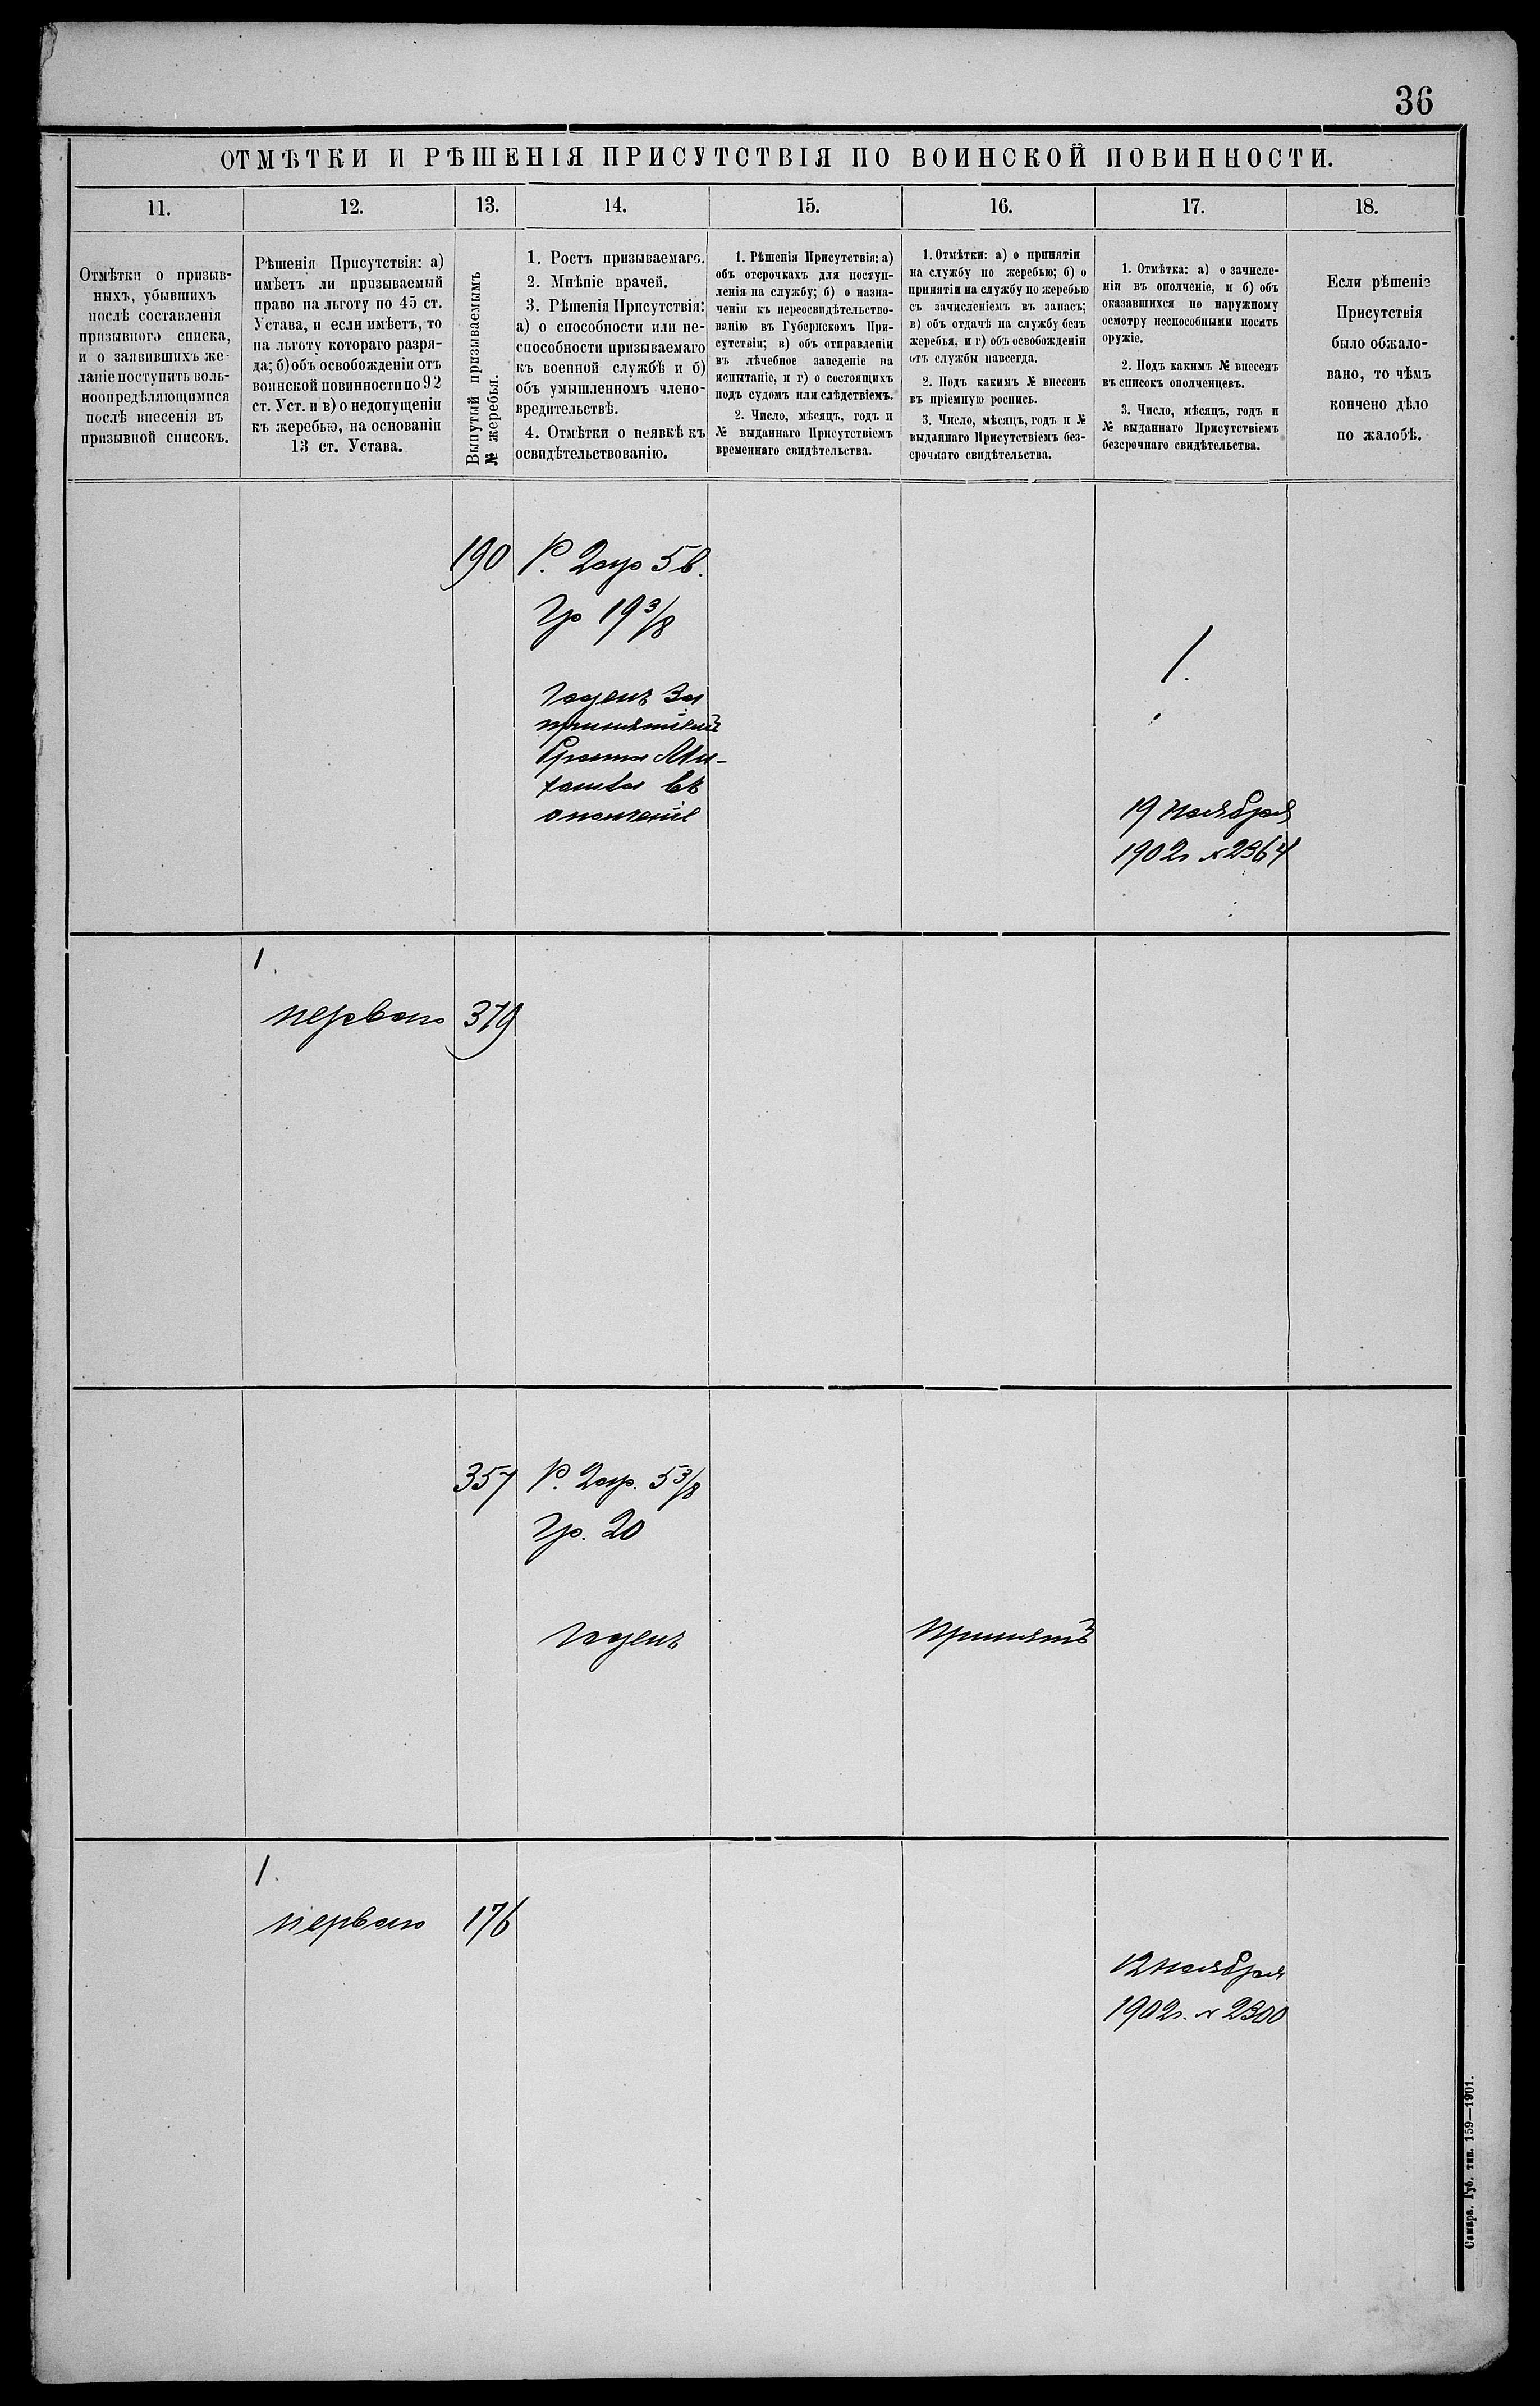 36
ОТМѢТКИ И РѢШЕНІЯ ПРИСУТСТВІЯ ПО ВОИНСКОЙ ПОВИННОСТИ.
11.
12.
13.
14.
15.
16.
17.
18.
Отмѣтки о призыв-
ныхъ, убывшихъ
послѣ составленія
призывного списка,
и о заявившихъ же-
ланіе поступить воль-
ноопредѣляющимися
послѣ внесенія въ
призывной списокъ.
Рѣшенія Присутствія: а)
имѣетъ ли призываемый
право на льготу по 45 ст.
Устава, и если имѣетъ, то
на льготу котораго разря-
да; б) объ освобожденіи отъ
воинской повинности по 92
ст. Уст. и в) о недопущеніи
къ жеребью, на основаніи
13 ст. Устава.
Вынутый призываемымъ
№ жеребья.
1. Ростъ призываемаго.
2. Мнѣніе врачей.
3. Рѣшенія Присутствія:
а) о способности или не-
способности призываемаго
къ военной службѣ и б)
объ умышленномъ члено-
вредительствѣ.
4. Отмѣтки о неявкѣ къ
освидѣтельствованію.
1. Рѣшенія Присутствія: а)
объ отсрочкахъ для поступ-
ленія на службу; б) о назна-
ченіи къ переосвидѣтельство-
ванію въ Губернскомъ При-
сутствіи; в) объ отправленіи
въ лѣчебное заведеніе на
испытаніе, и г) о состоящихъ
подъ судомъ или слѣдствіемъ.
2. Число, мѣсяцъ, годъ и
№ выданнаго Присутствіемъ
временнаго свидѣтельства.
1. Отмѣтки: а) о принятіи
на службу по жеребью; б) о
принятіи на службу по жеребью
съ зачисленіемъ въ запасъ;
в) объ отдачѣ на службу безъ
жеребья, и г) объ освобожденіи
отъ службы навсегда.
2. Подъ какимъ № внесенъ
въ пріемную роспись.
3. Число, мѣсяцъ, годъ и №
выданнаго Присутствіемъ без-
срочнаго свидѣтельства.
1. Отмѣтка: а) о зачисле-
ніи въ ополченіе, и б) объ
оказавшихся по наружному
осмотру неспособными носить
оружіе.
2. Подъ какимъ № внесенъ
въ списокъ ополченцевъ.
3. Число, мѣсяцъ, годъ и
№ выданнаго Присутствіемъ
безсрочнаго свидѣтельства.
Если рѣшеніе
Присутствія
было обжало-
вано, то чѣмъ
кончено дѣло
по жалобѣ.
190
Р. 2 ар 5 в.
Гр 19 3/8
Годенъ За
принятіемъ
брата Ми-
хаила въ
ополченіе
1.
19 ноября
1902 г № 2364
1.
перваго
379
357
Р. 2 ар. 5 3/8
Гр. 20
Годенъ
Принятъ
1.
перваго
176
12 ноября
1902 г. № 2300
Самара. Губ. тип. 159—1901.